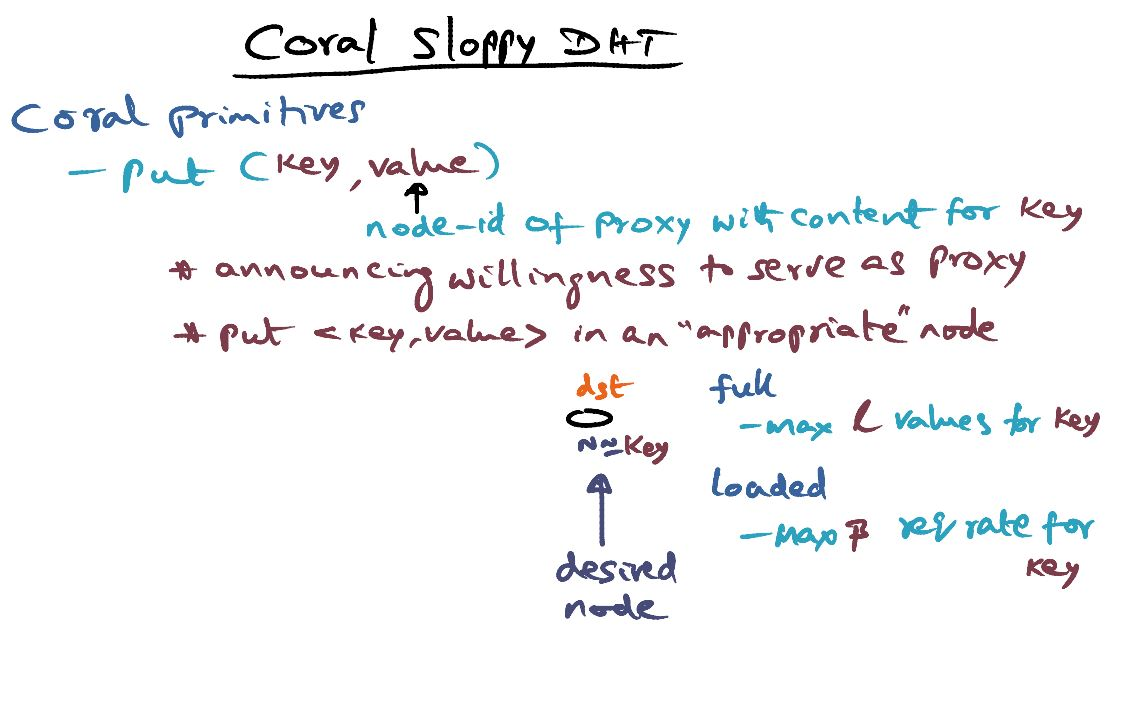 Coral Sloppy DHT
Coral primitives
- put (key, value)
node-id of proxy with content for key
* announcing willingness to serve as proxy
* put <key, value> in an "appropriate" node
dst
N≃key
desired
node
full
- max l values for key
loaded
- max β req rate for
key